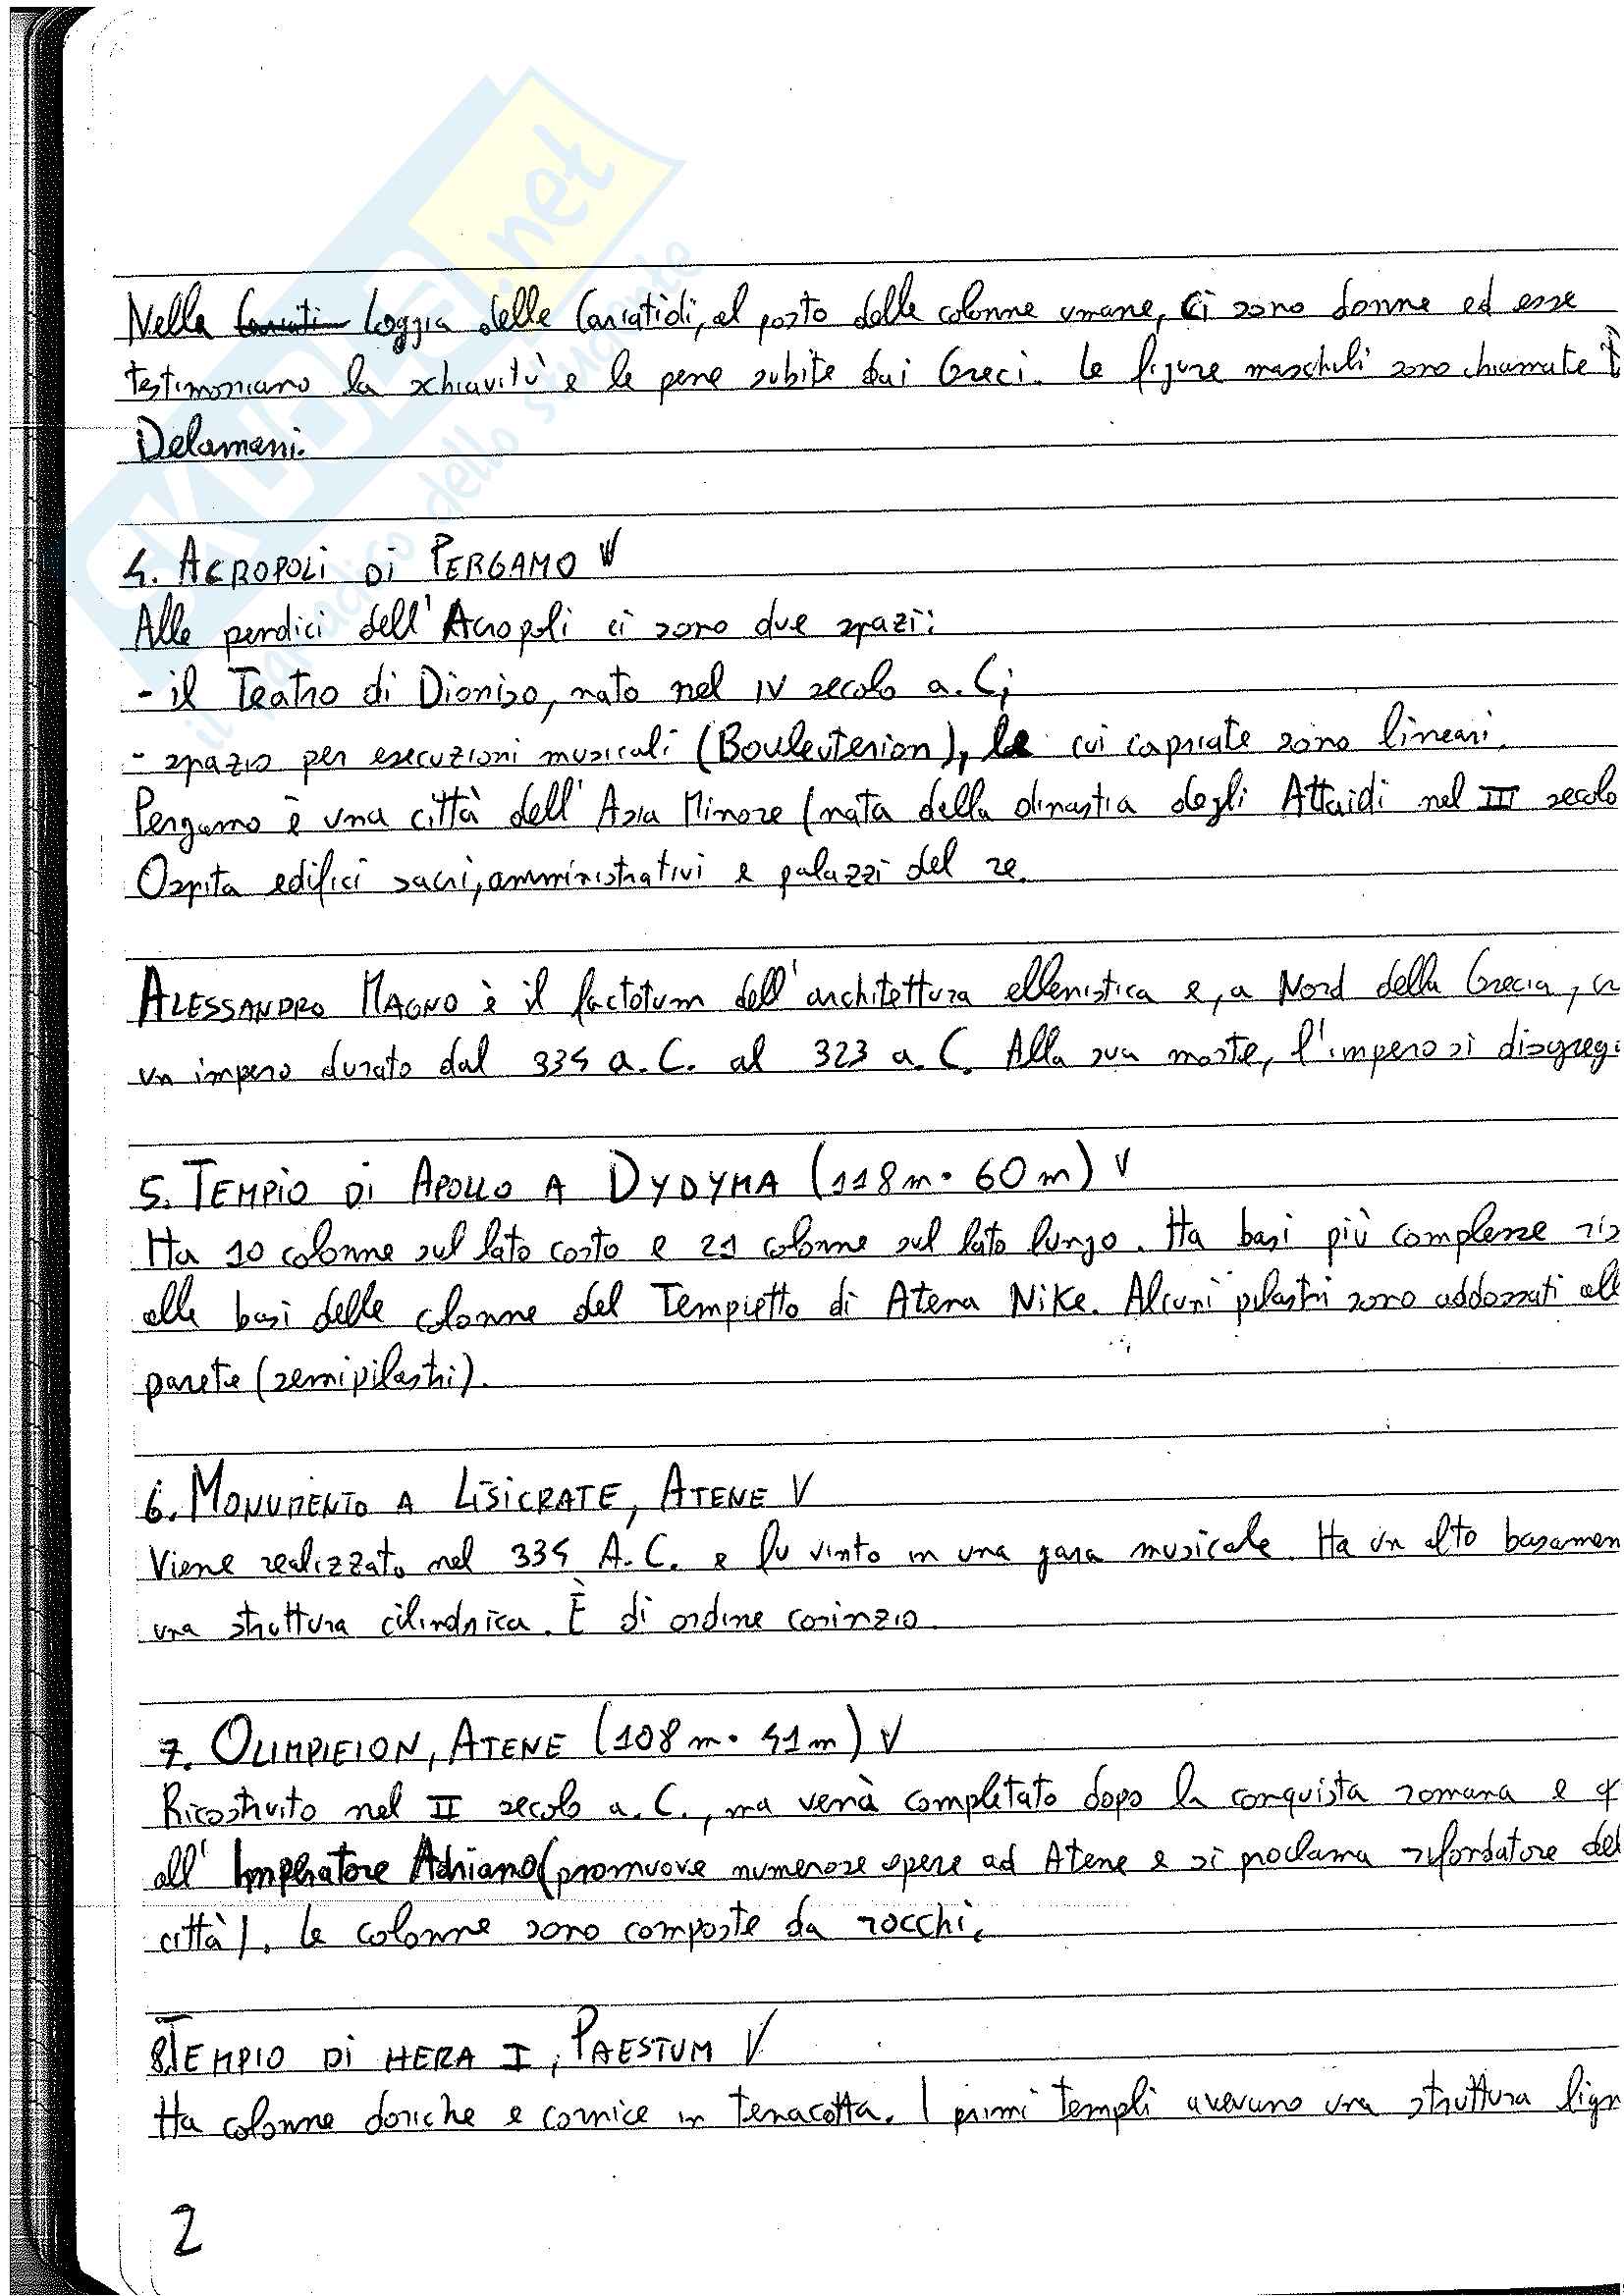 Nella Cariati Loggia delle Cariatidi, al posto delle colonne umane, ci sono donne ed esse
testimoniano la schiavitù e le pene subite dai Greci. Le figure maschili sono chiamate T
Delamoni.
4. ACROPOLI DI PERGAMO V
Alle pendici dell'Acropoli ci sono due spazi:
- il Teatro di Dioniso, nato nel IV secolo a.C;
- spazio per esecuzioni musicali (Bouleuterion), le cui capriate sono lineari.
Pergamo è una città dell'Asia Minore (nata dalla dinastia degli Attaidi nel III secolo
Ospita edifici sacri, amministrativi e palazzi del re.
ALESSANDRO MAGNO è il factotum dell'architettura ellenistica e, a Nord della Grecia, cr
un impero durato dal 334 a.C. al 323 a.C. Alla sua morte, l'impero si disgrega
5. TEMPIO DI APOLLO A DYDYMA (118m · 60m) V
Ha 10 colonne sul lato corto e 21 colonne sul lato lungo. Ha basi più complesse ris
alle basi delle colonne del Tempietto di Atena Nike. Alcuni pilastri sono addossati all
parete (semipilastri).
6. MONUMENTO A LISICRATE, ATENE V
Viene realizzato nel 334 A.C. e fu vinto in una gara musicale. Ha un alto basamen
una struttura cilindrica. È di ordine corinzio.
7. OLIMPIEION, ATENE (108m · 41m) V
Ricostruito nel II secolo a.C., ma verrà completato dopo la conquista romana e q
all'Imperatore Adriano (promuove numerose opere ad Atene e si proclama rifondatore del
città). Le colonne sono composte da rocchi.
8. TEMPIO DI HERA I, PAESTUM V
Ha colonne doriche e cornice in terracotta. I primi templi avevano una struttura lign
2
SKUOLA.net
il paradiso dello studente